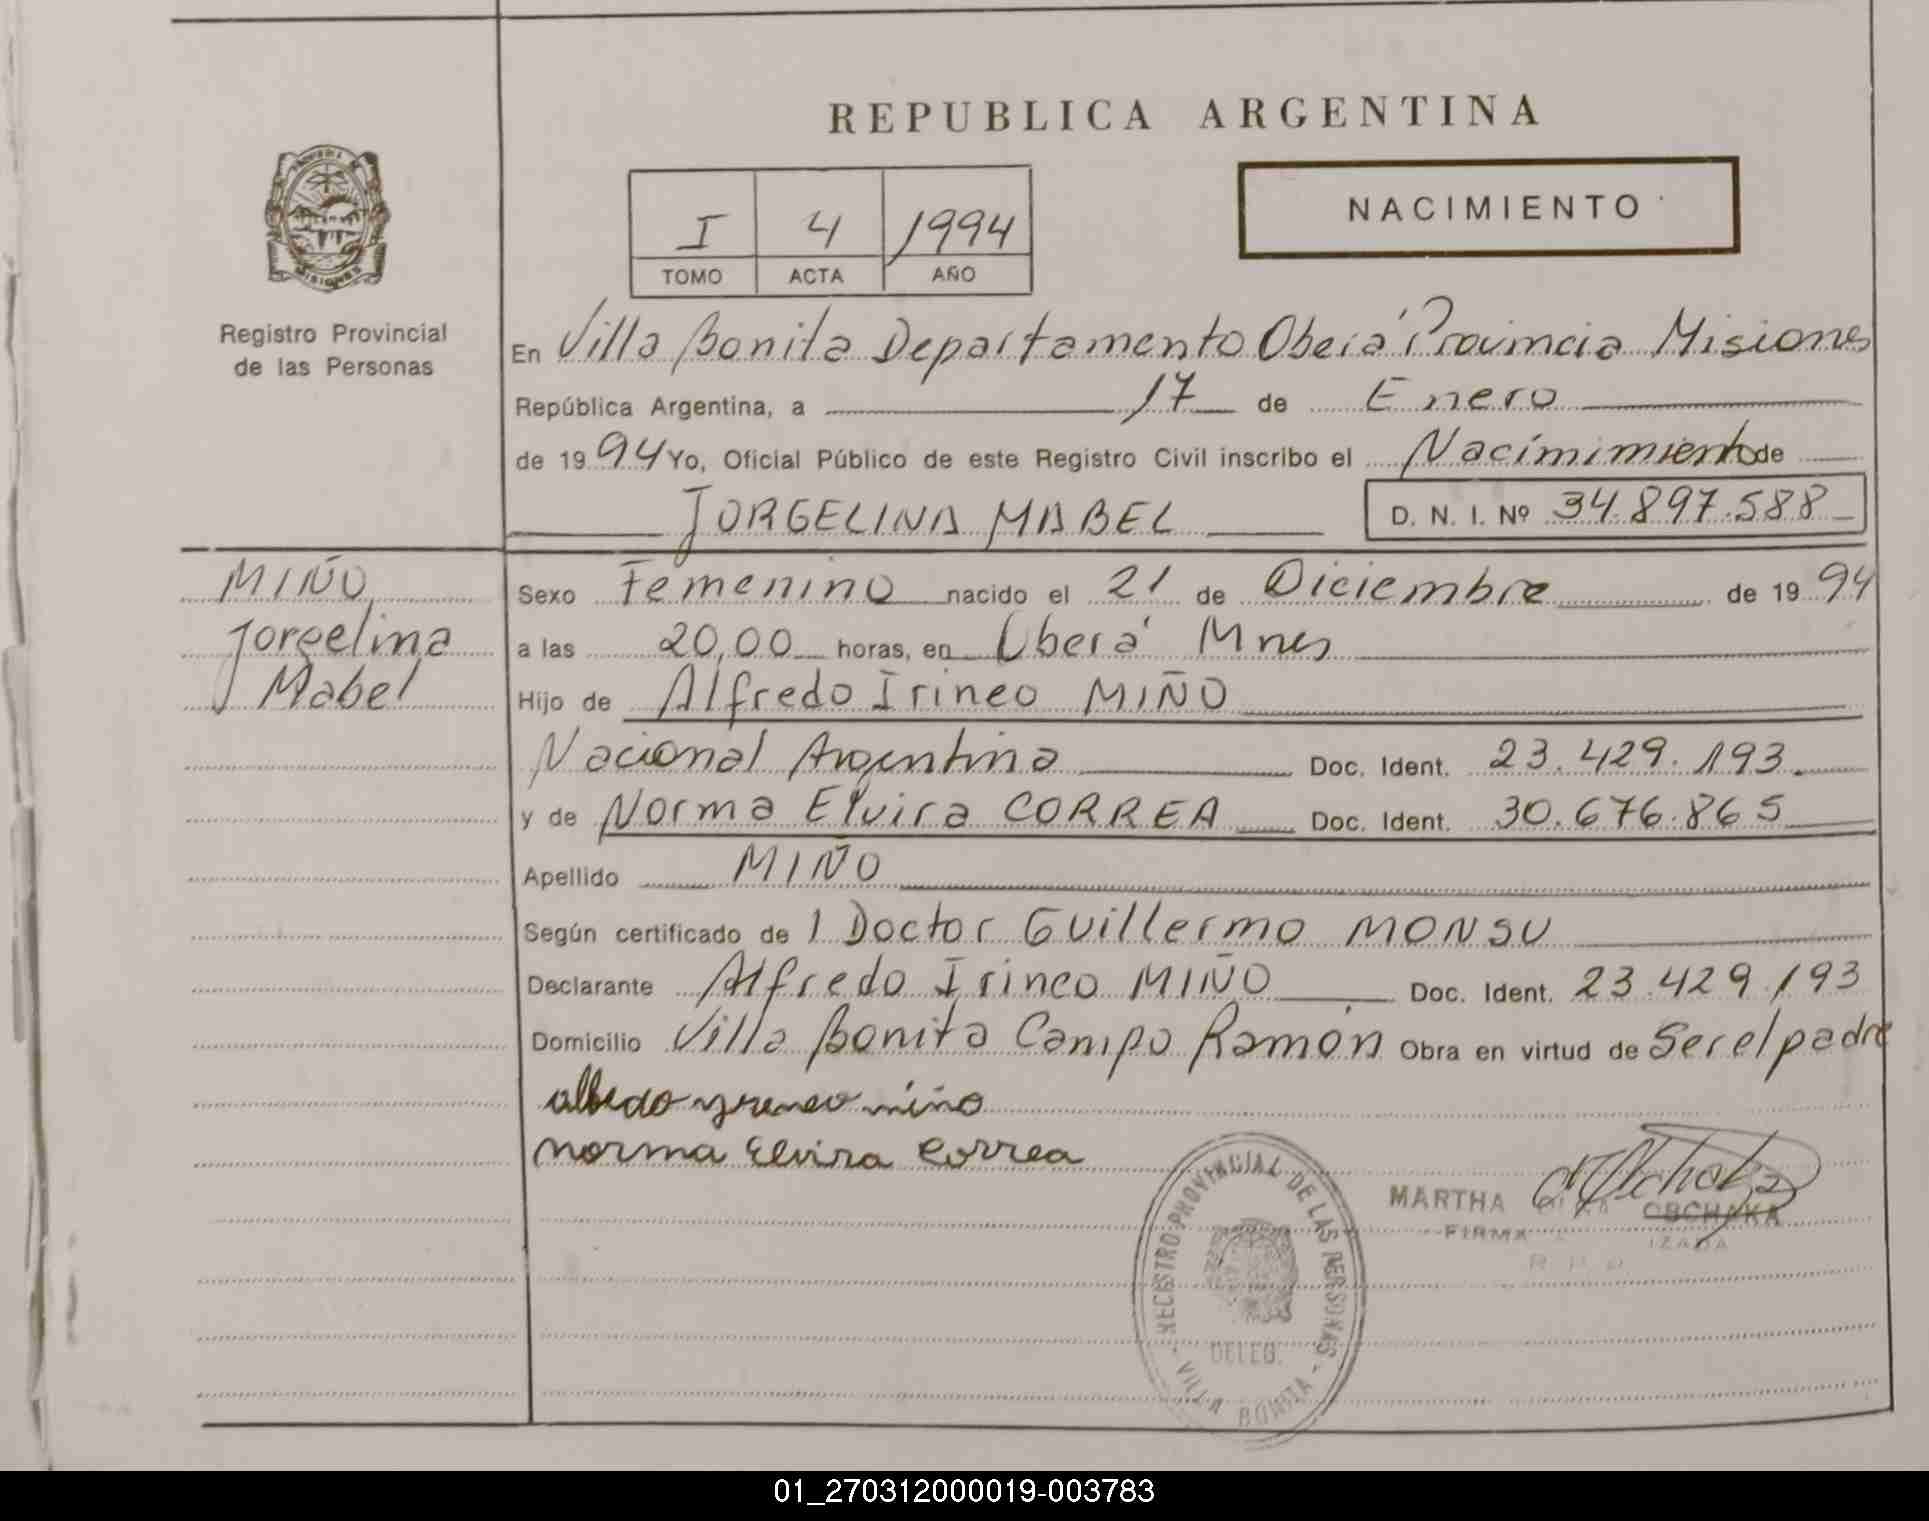 REPUBLICA ARGENTINA
I 4 1994
TOMO ACTA AÑO
NACIMIENTO
Registro Provincial
de las Personas
En Villa Bonita Departamento Oberá Provincia Misiones
República Argentina, a 17 de Enero
de 1994 Yo, Oficial Público de este Registro Civil inscribo el Nacimimiento de
JORGELINA MABEL D. N. I. Nº 34.897.588
MIÑO
Jorgelina
Mabel
Sexo Femenino nacido el 21 de Diciembre de 1994
a las 20,00 horas, en Oberá Mnes
Hijo de Alfredo Irineo MIÑO
Nacional Argentina Doc. Ident. 23.429.193
y de Norma Elvira CORREA Doc. Ident. 30.676.865
Apellido MIÑO
Según certificado de l Doctor Guillermo MONSU
Declarante Alfredo Irineo MIÑO Doc. Ident. 23.429.193
Domicilio Villa Bonita Campo Ramón Obra en virtud de Ser el padre
yreneo miño
norma Elvira Correa
MARTHA OBCHAKA
FIRMA
REGISTRO PROVINCIAL DE LAS PERSONAS
DELEG.
VILLA BONITA
01_270312000019-003783